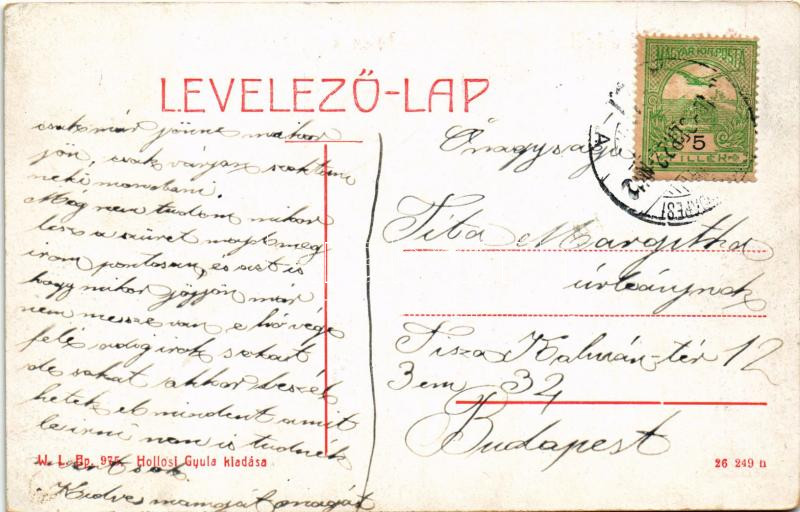 LEVELEZŐ-LAP
MAGYAR KIR. POSTA
5
FILLÉR
BUDAPEST
csak már jönne mikor
jön, csak várjon szoktam
neki mondani.
Meg nem tudom mikor
lesz a szüret majd meg
irom pontosan, és azt is
hogy mikor jöjjön már
nem messze van a hó vége
felé addig irok sokat
de sokat akkor beszél
hetek el mindent amit
leirni nem is tudnék
sok.
Kedves mamáját magát
Őnagysága
Tiba Margitka
úrleánynak
Tisza Kalmán-tér 12
3 em 32
Budapest
W. L. Bp. 975. Hollosi Gyula kiadása
26 249 n